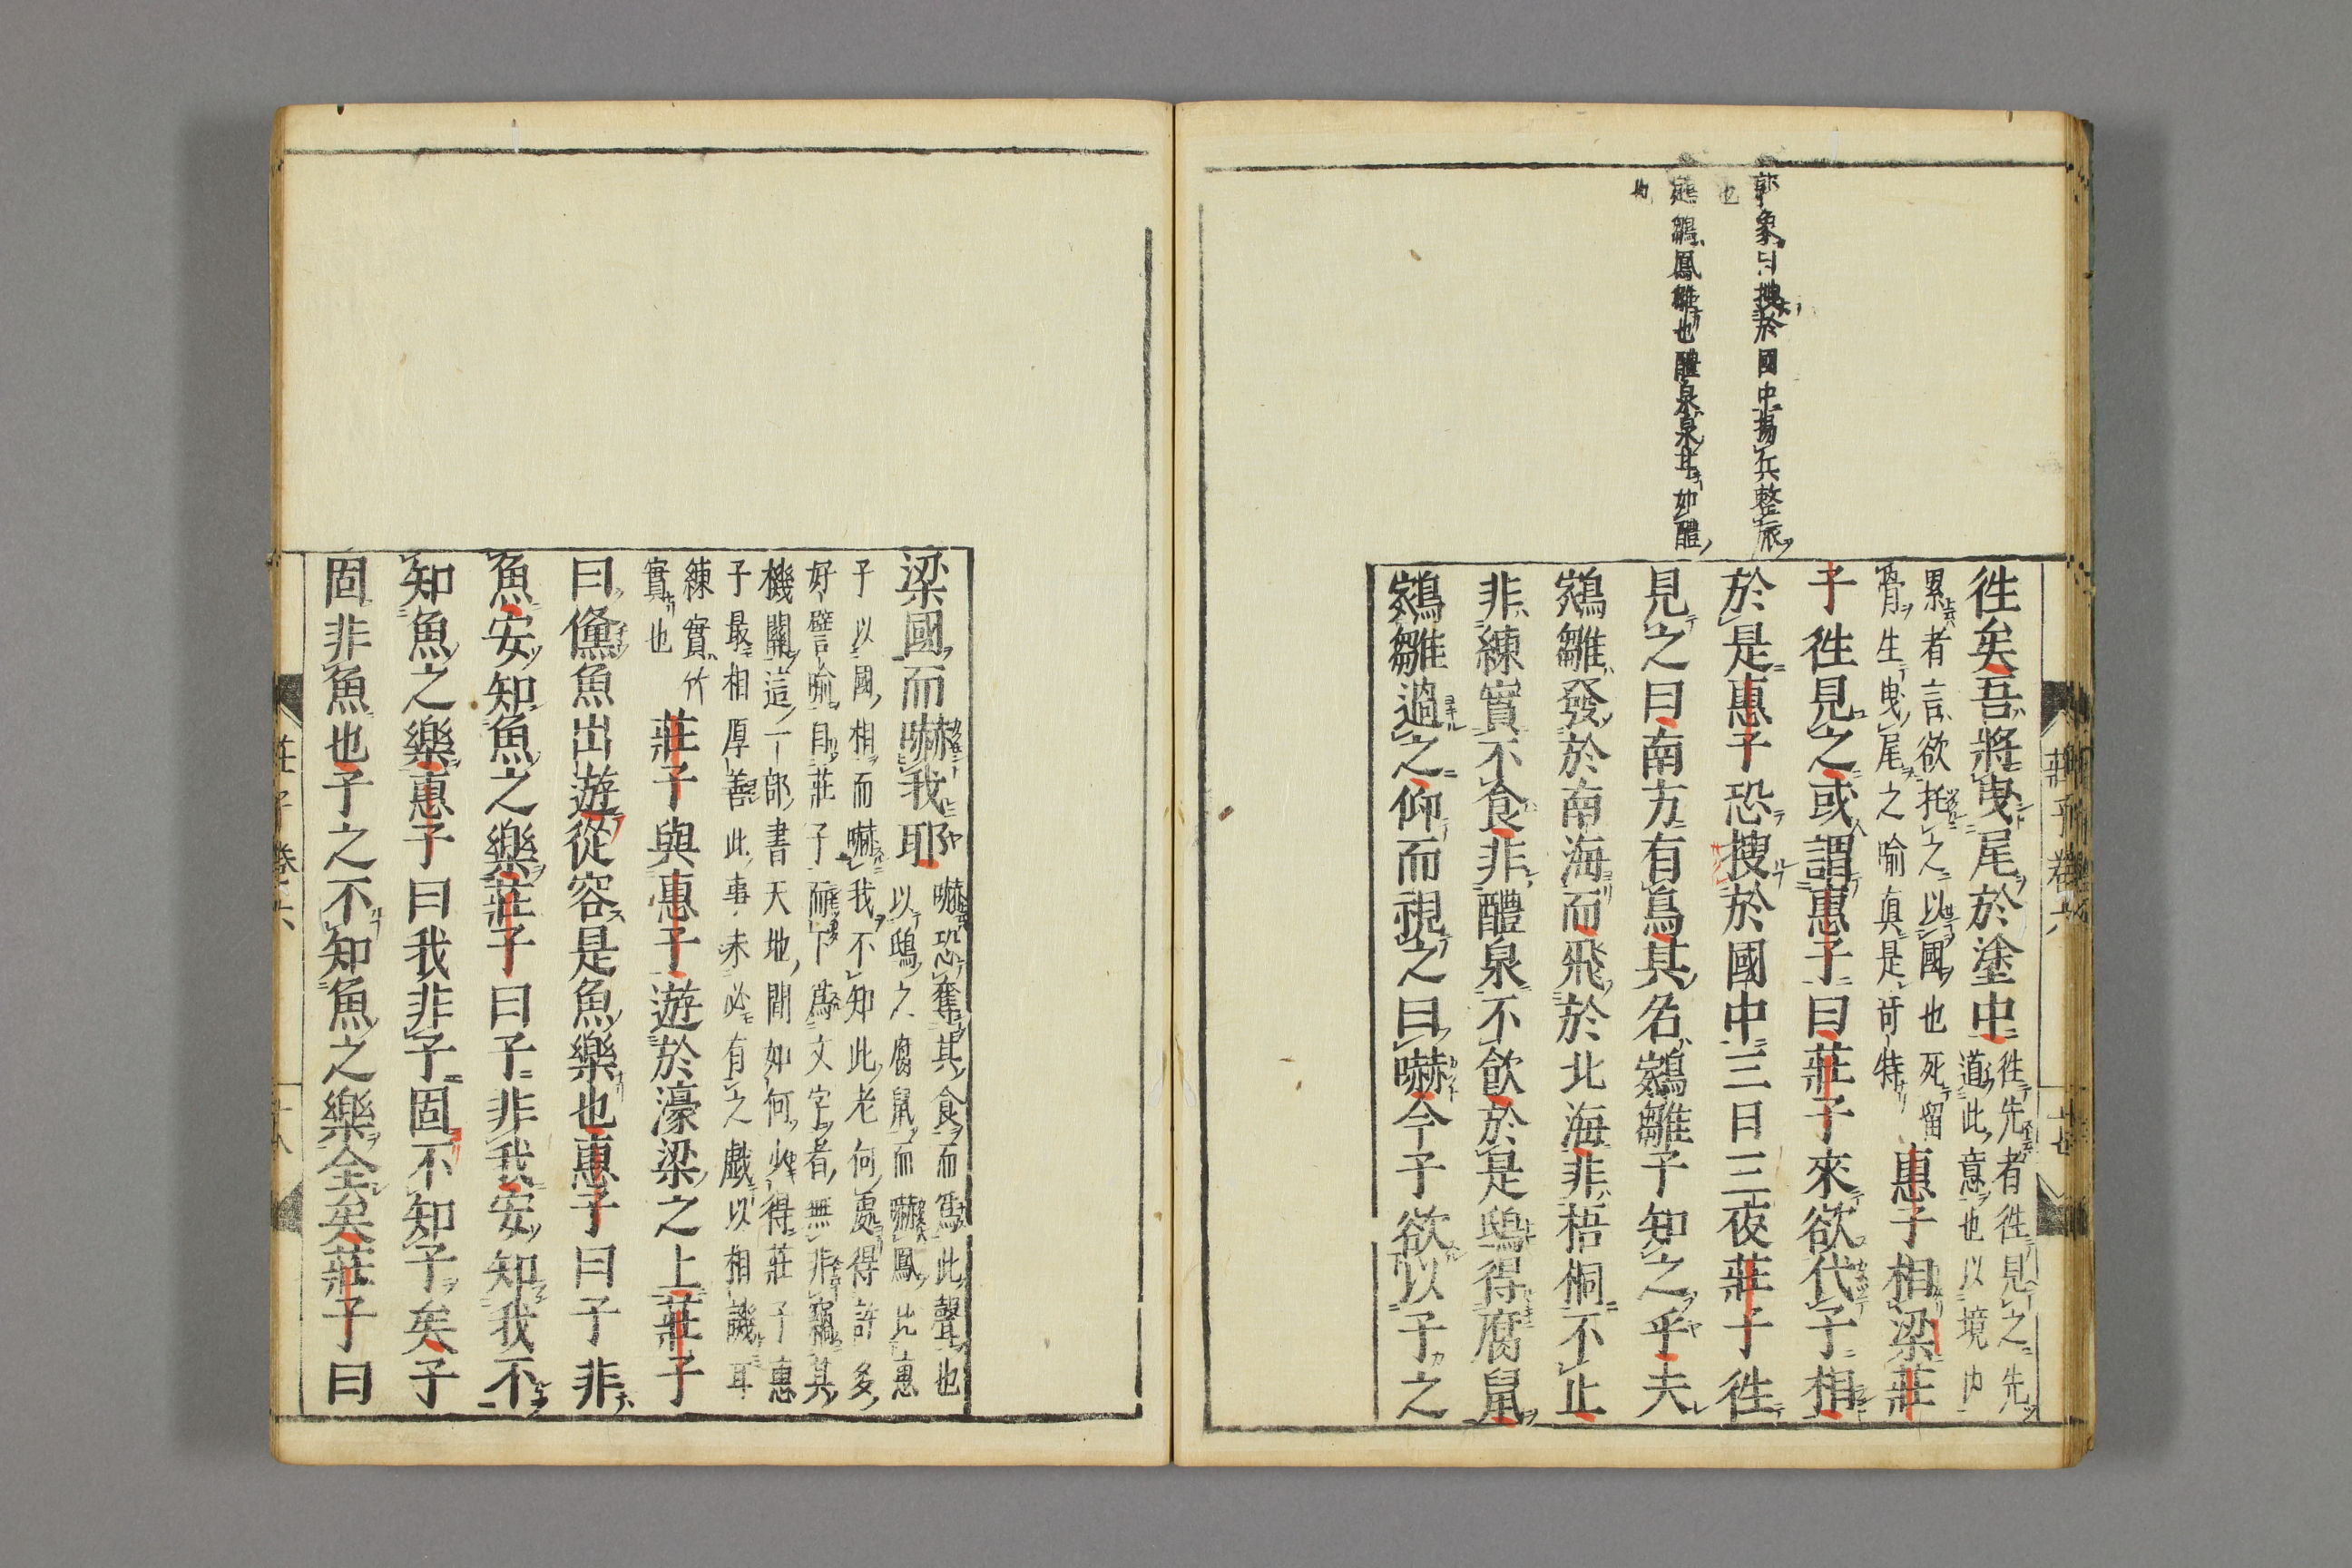 郭象曰搜於國中揚兵整旅
也
鵷鶵鳳雛也醴泉泉甘如醴
也
徃矣吾將曳尾於塗中
徃先者徃見之先
道此意也以境内
累者言欲托之以國也死留
骨生曳尾之喻真是竒特
惠子相梁莊
子徃見之或謂惠子曰莊子來欲代子相
於是惠子恐搜於國中三日三夜莊子徃
見之曰南方有鳥其名鵷鶵子知之乎夫
鵷鶵發於南海而飛於北海非梧桐不止
非練實不食非醴泉不飲於是鴟得腐鼠
鵷鶵過之仰而視之曰嚇今子欲以子之
梁國而嚇我耶
嚇恐奪其食而爲此聲也
以鴟之腐鼠而嚇鳳比惠
子以國相而嚇我不知此老何處得許多
好譬喻自莊子而下爲文字者無非竊其
機關這一部書天地間如何少得莊子惠
子最相厚善此事未必有之戲以相譏耳
練實竹
實也
莊子與惠子遊於濠梁之上莊子
曰儵魚出遊從容是魚樂也惠子曰子非
魚安知魚之樂莊子曰子非我安知我不
知魚之樂惠子曰我非子固不知子矣子
固非魚也子之不知魚之樂全矣莊子曰
莊子卷六
十八